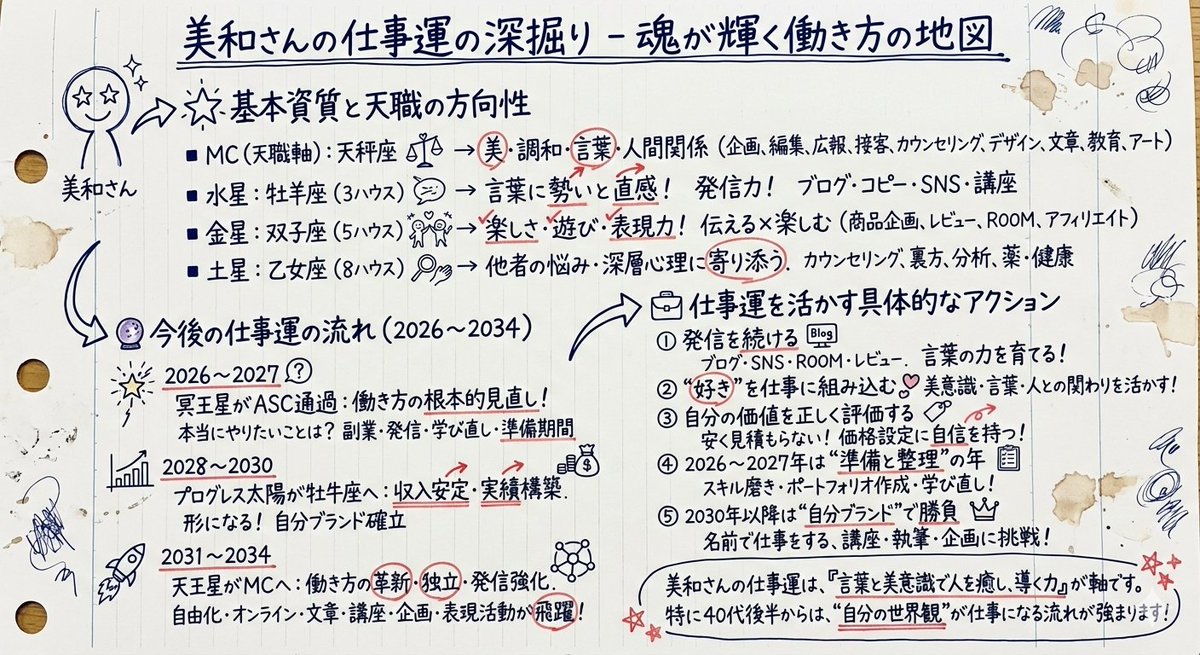 美和さんの仕事運の深掘り – 魂が輝く働き方の地図
美和さん
基本資質と天職の方向性
■ MC(天職軸): 天秤座 → 美・調和・言葉・人間関係 (企画、編集、広報、接客、カウンセリング、デザイン、文章、教育、アート)
■ 水星: 牡羊座 (3ハウス) → 言葉に勢いと直感! 発信力! ブログ・コピー・SNS・講座
■ 金星: 双子座 (5ハウス) → 楽しさ・遊び・表現力! 伝える×楽しむ (商品企画、レビュー、ROOM、アフィリエイト)
■ 土星: 乙女座 (8ハウス) → 他者の悩み・深層心理に寄り添う. カウンセリング、裏方、分析、薬・健康
今後の仕事運の流れ (2026〜2034)
2026〜2027 ?
冥王星がASC通過: 働き方の根本的見直し!
本当にやりたいことは? 副業・発信・学び直し・準備期間
2028〜2030 $
プログレス太陽が牡牛座へ: 収入安定・実績構築.
形になる! 自分ブランド確立
2031〜2034
天王星がMCへ: 働き方の革新・独立・発信強化.
自由化・オンライン・文章・講座・企画・表現活動が飛躍!
仕事運を活かす具体的なアクション
① 発信を続ける Blog
ブログ・SNS・ROOM・レビュー. 言葉の力を育てる!
② “好き”を仕事に組み込む 美意識・言葉・人との関わりを活かす!
③ 自分の価値を正しく評価する
安く見積もらない! 価格設定に自信を持つ!
④ 2026〜2027年は“準備と整理”の年
スキル磨き・ポートフォリオ作成・学び直し!
⑤ 2030年以降は“自分ブランド”で勝負
名前で仕事をする、講座・執筆・企画に挑戦!
美和さんの仕事運は、『言葉と美意識で人を癒し、導く力』が軸です。
特に40代後半からは、“自分の世界観”が仕事になる流れが強まります!